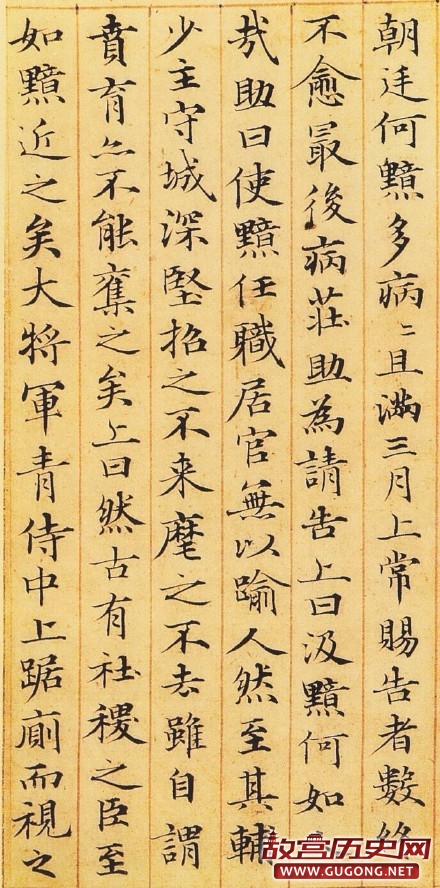 朝廷何黯多病〻且滿三月上常賜告者數終
不愈最後病莊助為請告上曰汲黯何如
㢤助曰使黯任職居官無以踰人然至其輔
少主守城深堅招之不来麾之不去雖自謂
賁育亦不能奪之矣上曰然古有社稷之臣至
如黯近之矣大將軍青侍中上踞廁而視之
故宫历史网
WWW.GUGONG.NET